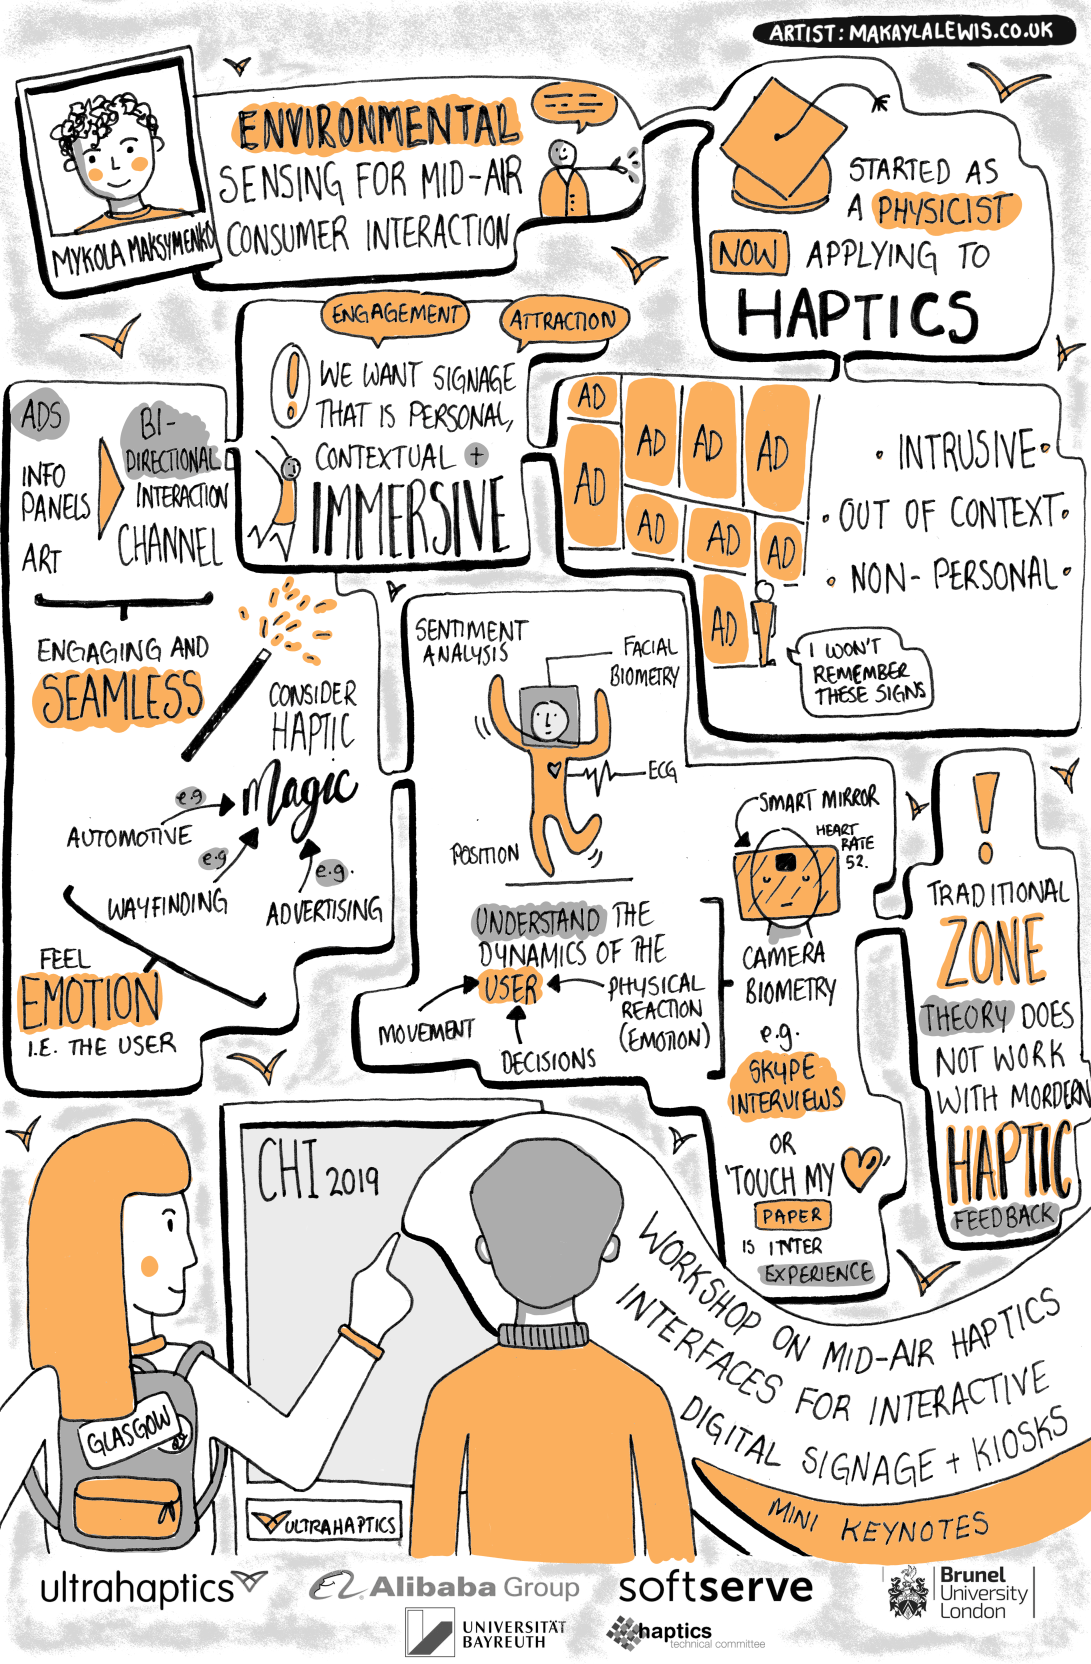 ARTIST: MAKAYLALEWIS.CO.UK
MYKOLA MAKSYMENKO
ENVIRONMENTAL
SENSING FOR MID-AIR
CONSUMER INTERACTION
STARTED AS
A PHYSICIST
NOW APPLYING TO
HAPTICS
ENGAGEMENT
ATTRACTION
WE WANT SIGNAGE
THAT IS PERSONAL,
CONTEXTUAL +
IMMERSIVE
AD
AD
AD
AD
AD
AD
AD
AD
AD
• INTRUSIVE •
• OUT OF CONTEXT •
• NON-PERSONAL •
I WON'T
REMEMBER
THESE SIGNS
ADS
INFO
PANELS
ART
BI-
DIRECTIONAL
INTERACTION
CHANNEL
ENGAGING AND
SEAMLESS
CONSIDER
HAPTIC
Magic
e.g
AUTOMOTIVE
e.g
WAYFINDING
e.g.
ADVERTISING
FEEL
EMOTION
I.E. THE USER
SENTIMENT
ANALYSIS
FACIAL
BIOMETRY
ECG
POSITION
UNDERSTAND THE
DYNAMICS OF THE
USER
MOVEMENT
DECISIONS
PHYSICAL
REACTION
(EMOTION)
SMART MIRROR
HEART
RATE
52.
CAMERA
BIOMETRY
e.g.
SKYPE
INTERVIEWS
OR
'TOUCH MY
PAPER
IS INTER
EXPERIENCE
TRADITIONAL
ZONE
THEORY DOES
NOT WORK
WITH MORDERN
HAPTIC
FEEDBACK
CHI 2019
GLASGOW
ULTRAHAPTICS
WORKSHOP ON MID-AIR HAPTICS
INTERFACES FOR INTERACTIVE
DIGITAL SIGNAGE + KIOSKS
MINI KEYNOTES
ultrahaptics
Alibaba Group
softserve
Brunel
University
London
UNIVERSITÄT
BAYREUTH
haptics
technical committee